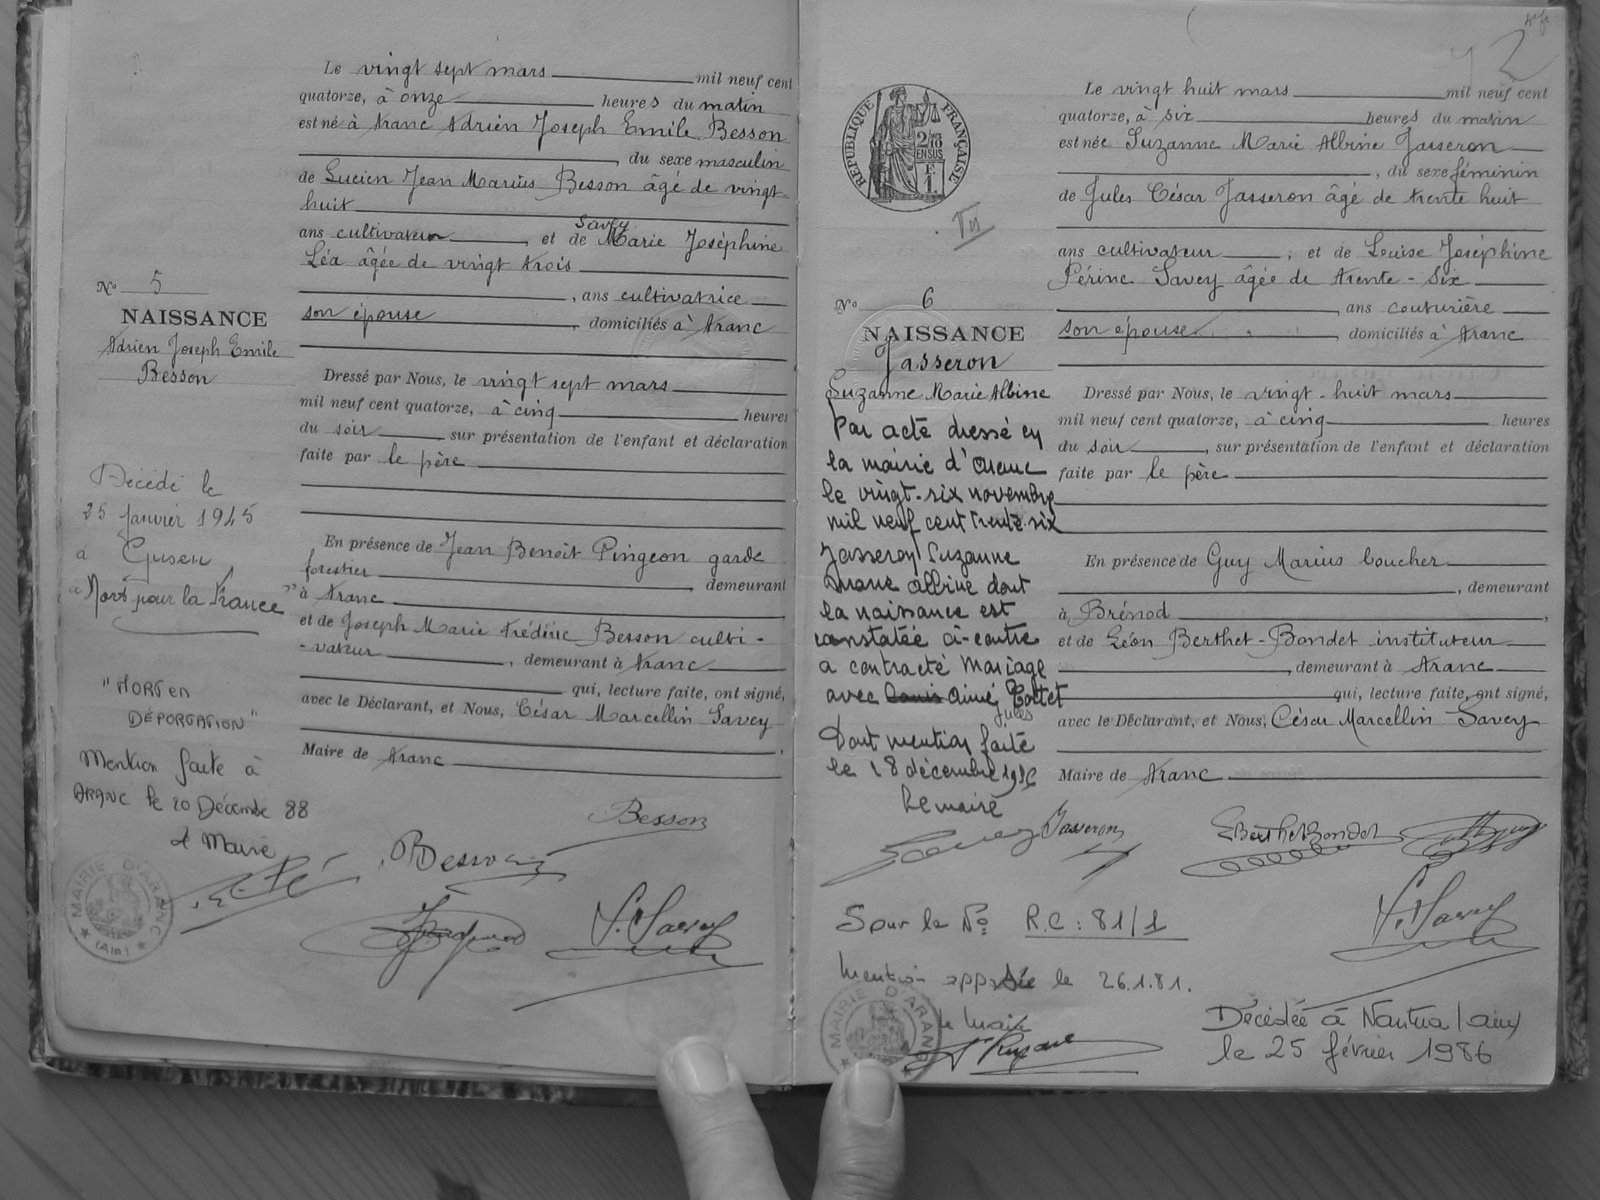 Le vingt sept mars mil neuf cent
quatorze, à onze heures du matin
est né à Aranc Adrien Joseph Emile Besson
, du sexe masculin
de Lucien Jean Marius Besson âgé de vingt
huit
ans cultivateur, et de Savey Marie Joséphine
Léa âgée de vingt trois
, ans cultivatrice
son épouse, domiciliés à Aranc
Dressé par Nous, le vingt sept mars
mil neuf cent quatorze, à cinq heures
du soir sur présentation de l'enfant et déclaration
faite par le père
En présence de Jean Benoît Pingeon garde
forestier, demeurant
à Aranc
et de Joseph Marie Frédéric Besson culti-
-vateur, demeurant à Aranc
qui, lecture faite, ont signé,
avec le Déclarant, et Nous, César Marcellin Savey
Maire de Aranc
Besson
Besson
Savey
No 5
NAISSANCE
Adrien Joseph Emile
Besson
Décédé le
25 Janvier 1945
à Gusen
"Mort pour la France"
"MORT EN
DÉPORTATION"
Mention faite à
ARANC le 20 Décembre 88
Le Maire
MAIRIE D'ARANC
(Ain)
RÉPUBLIQUE FRANÇAISE
2/10
EN SUS
Le vingt huit mars mil neuf cent
quatorze, à six heures du matin
est née Suzanne Marie Albine Jasseron
, du sexe féminin
de Jules César Jasseron âgé de trente huit
ans cultivateur, et de Louise Joséphine
Périne Savey âgée de trente-six
, ans couturière
son épouse, domiciliés à Aranc
Dressé par Nous, le vingt-huit mars
mil neuf cent quatorze, à cinq heures
du soir, sur présentation de l'enfant et déclaration
faite par le père
En présence de Guy Marius Coucher
, demeurant
à Brénod
et de Léon Berthet-Bondet instituteur
, demeurant à Aranc
qui, lecture faite, ont signé,
avec le Déclarant, et Nous, César Marcellin Savey
Maire de Aranc
No 6
NAISSANCE
Jasseron
Suzanne Marie Albine
Par acte dressé en
la mairie d'Aranc
le vingt-six novembre
mil neuf cent trente-six
Jasseron Suzanne
Marie Albine dont
la naissance est
constatée ci-contre
a contracté mariage
avec Louis Aimé Jules Tottet
Dont mention faite
le 18 décembre 1936
Le maire
Savey
Jasseron
LBerthetBondet
Savey
Sous le No R.C : 81/1
Mention apposée le 26.1.81.
Le Maire
MAIRIE D'ARANC
Décédée à Nantua (ain)
le 25 février 1986